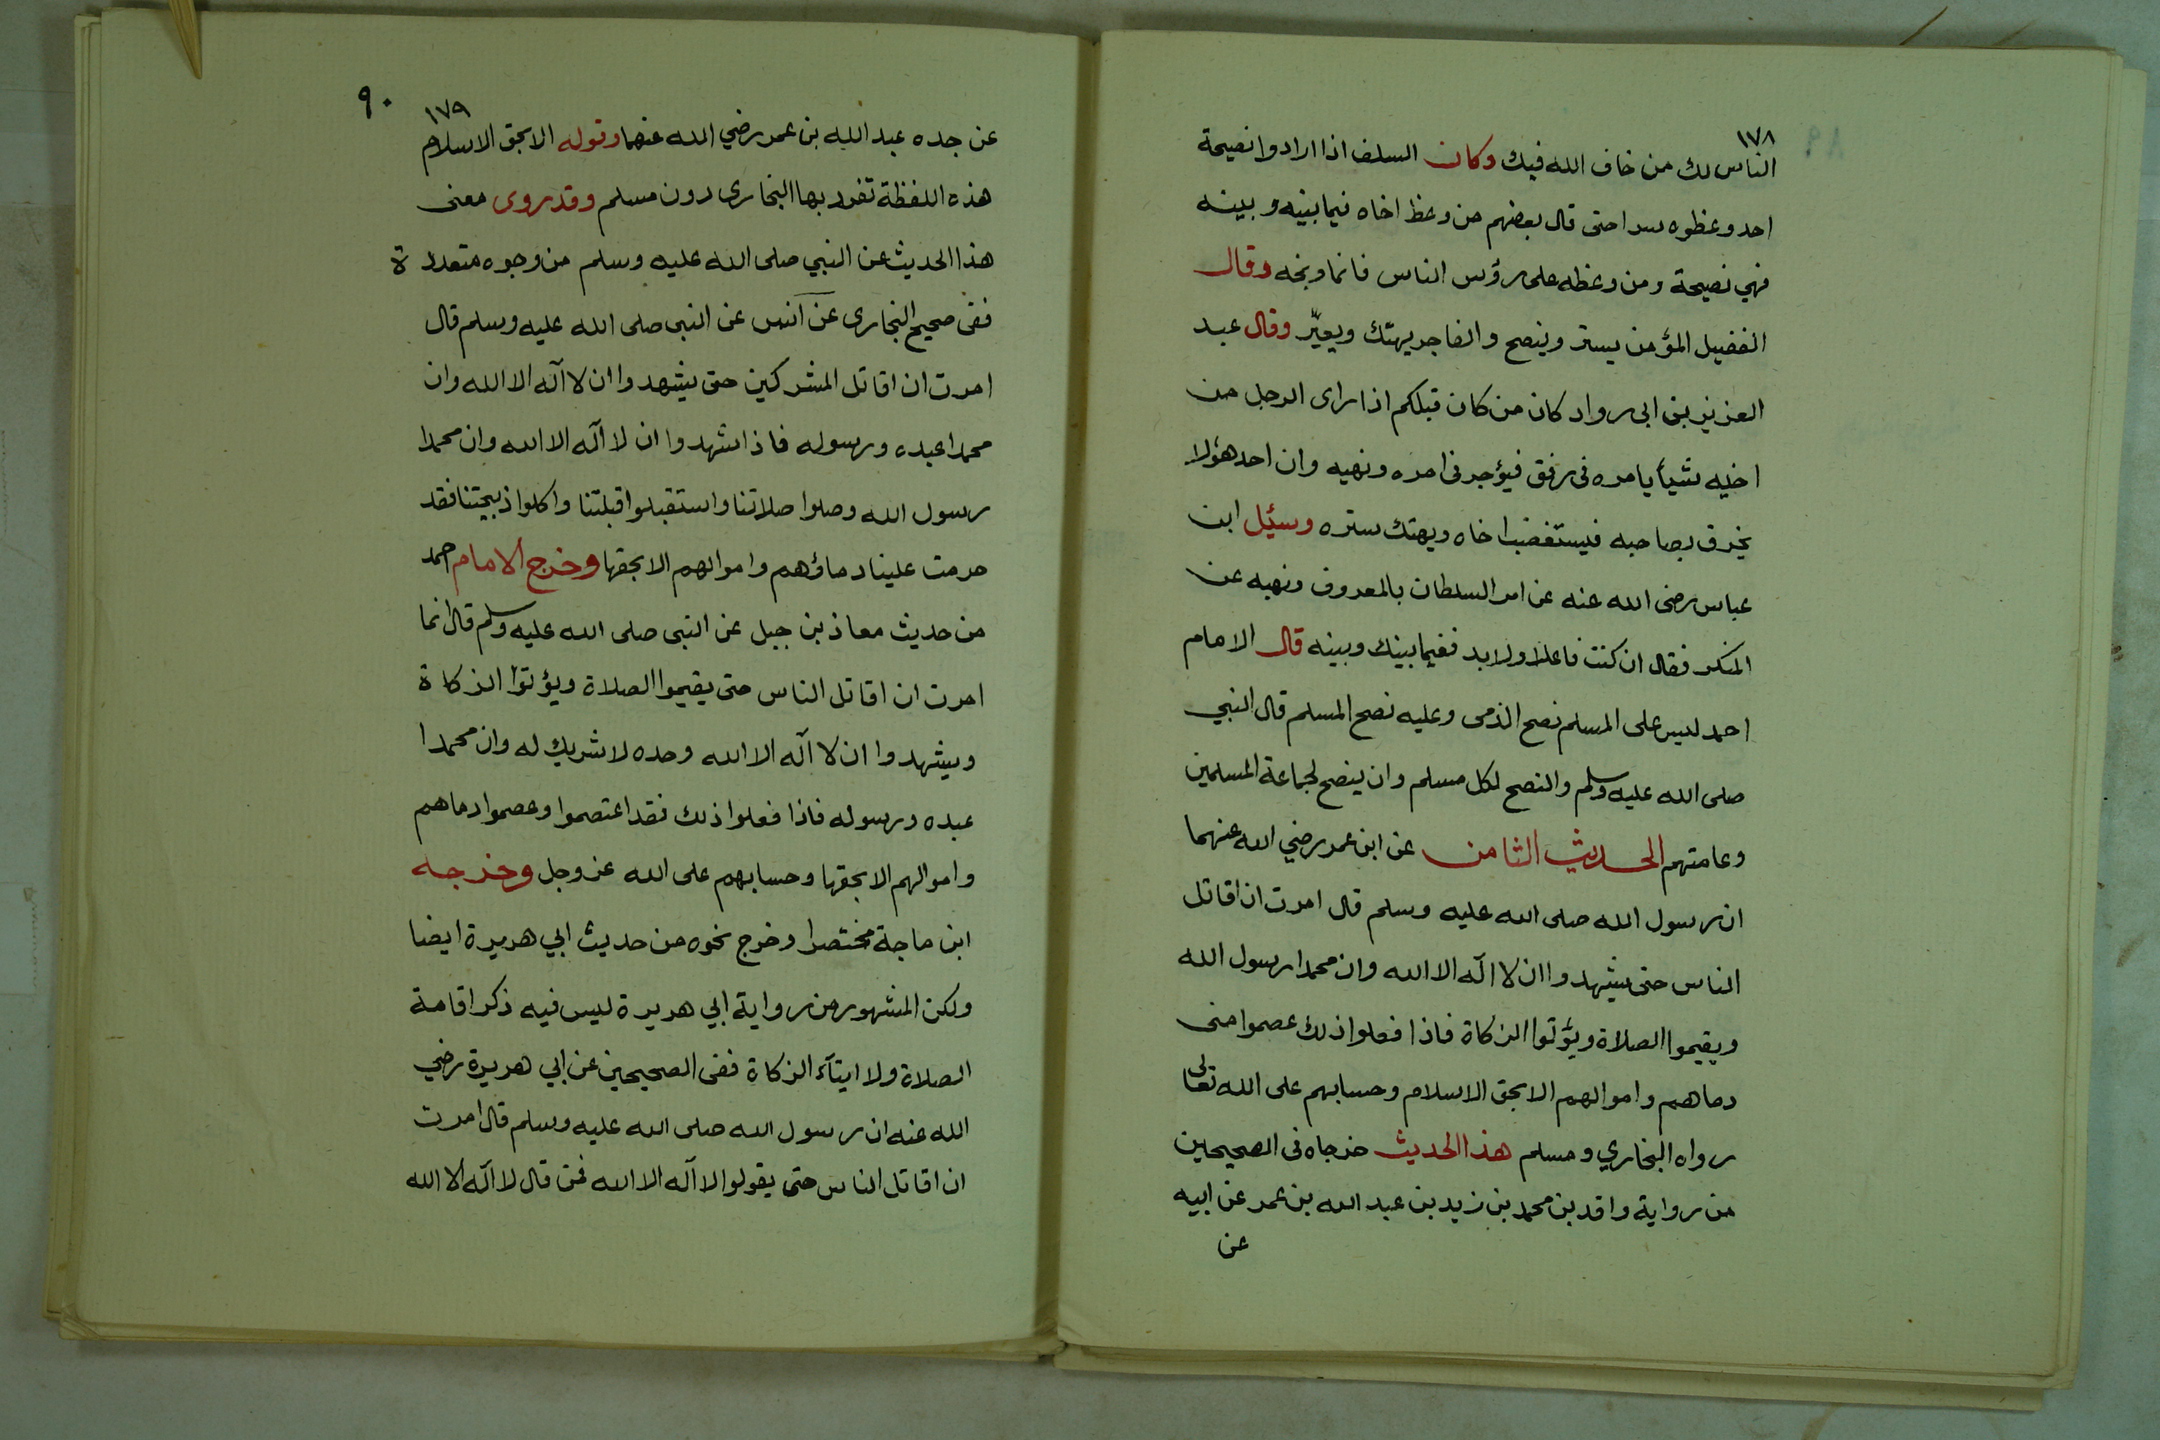 ١٧٨
الناس لك من خاف الله فيك وكان السلف اذا ارادوا نصيحة
احد وعظوه سرا حتى قال بعضهم من وعظ اخاه فيما بينه وبينه
فهي نصيحة ومن وعظه على رؤس الناس فانما وبخه وقال
الفضيل المؤمن يستر وينصح والفاجر يهتك ويعيّر وقال عبد
العزيز بن ابى رواد كان من كان قبلكم اذا راى الرجل من
اخيه شيأ يامره فى رفق فيؤجر فى امره ونهيه وان احد هؤلا
يخرق بصاحبه فيستغضب اخاه ويهتك ستره وسئيل ابن
عباس رضى الله عنه عن امر السلطان بالمعروف ونهيه عن
المنكر فقال ان كنت فاعلا ولابد ففيما بينك وبينه قال الامام
احمد ليس على المسلم نصح الذمى وعليه نصح المسلم قال النبي
صلى الله عليه وسلم والنصح لكل مسلم وان ينصح لجماعة المسلمين
وعامتهم الحديث الثامن عن ابن عمر رضي الله عنهما
ان رسول الله صلى الله عليه وسلم قال امرت ان اقاتل
الناس حتى يشهدوا ان لا اله الا الله وان محمدا رسول الله
ويقيموا الصلاة ويؤتوا الزكاة فاذا فعلوا ذلك عصموا منى
دماهم واموالهم الا بحق الاسلام وحسابهم على الله تعالى
رواه البخاري ومسلم هذا الحديث خرجاه فى الصحيحين
من رواية واقد بن محمد بن زيد بن عبد الله بن عمر عن ابيه
عن
٩٠
١٧٩
عن جده عبد الله بن عمر رضي الله عنهما وقوله الا بحق الاسلام
هذه اللفظة تفرد بها البخارى دون مسلم وقد روى معنى
هذا الحديث عن النبي صلى الله عليه وسلم من وجوه متعددة
ففى صحيح البخارى عن انس عن النبى صلى الله عليه وسلم قال
امرت ان اقاتل المشركين حتى يشهدوا ان لا آله الا الله وان
محمدا عبده ورسوله فاذا شهدوا ان لا آله الا الله وان محمدا
رسول الله وصلوا صلاتنا واستقبلوا قبلتنا واكلوا ذبيحتنا فقد
حرمت علينا دماؤهم واموالهم الا بحقها وخرج الامام احمد
من حديث معاذ بن جبل عن النبى صلى الله عليه وسلم قال انما
امرت ان اقاتل الناس حتى يقيموا الصلاة ويؤتوا الزكاة
ويشهدوا ان لا آله الا الله وحده لا شريك له وان محمدا
عبده ورسوله فاذا فعلوا ذلك فقد اعتصموا وعصموا دماهم
واموالهم الا بحقها وحسابهم على الله عز وجل وخرجه
ابن ماجة مختصرا وخرج نحوه من حديث ابي هريرة ايضا
ولكن المشهور من رواية ابي هريرة ليس فيه ذكر اقامة
الصلاة ولا ايتآء الزكاة ففى الصحيحين عن ابي هريرة رضي
الله عنه ان رسول الله صلى الله عليه وسلم قال امرت
ان اقاتل الناس حتى يقولوا لا آله الا الله فمن قال لا آله الا الله